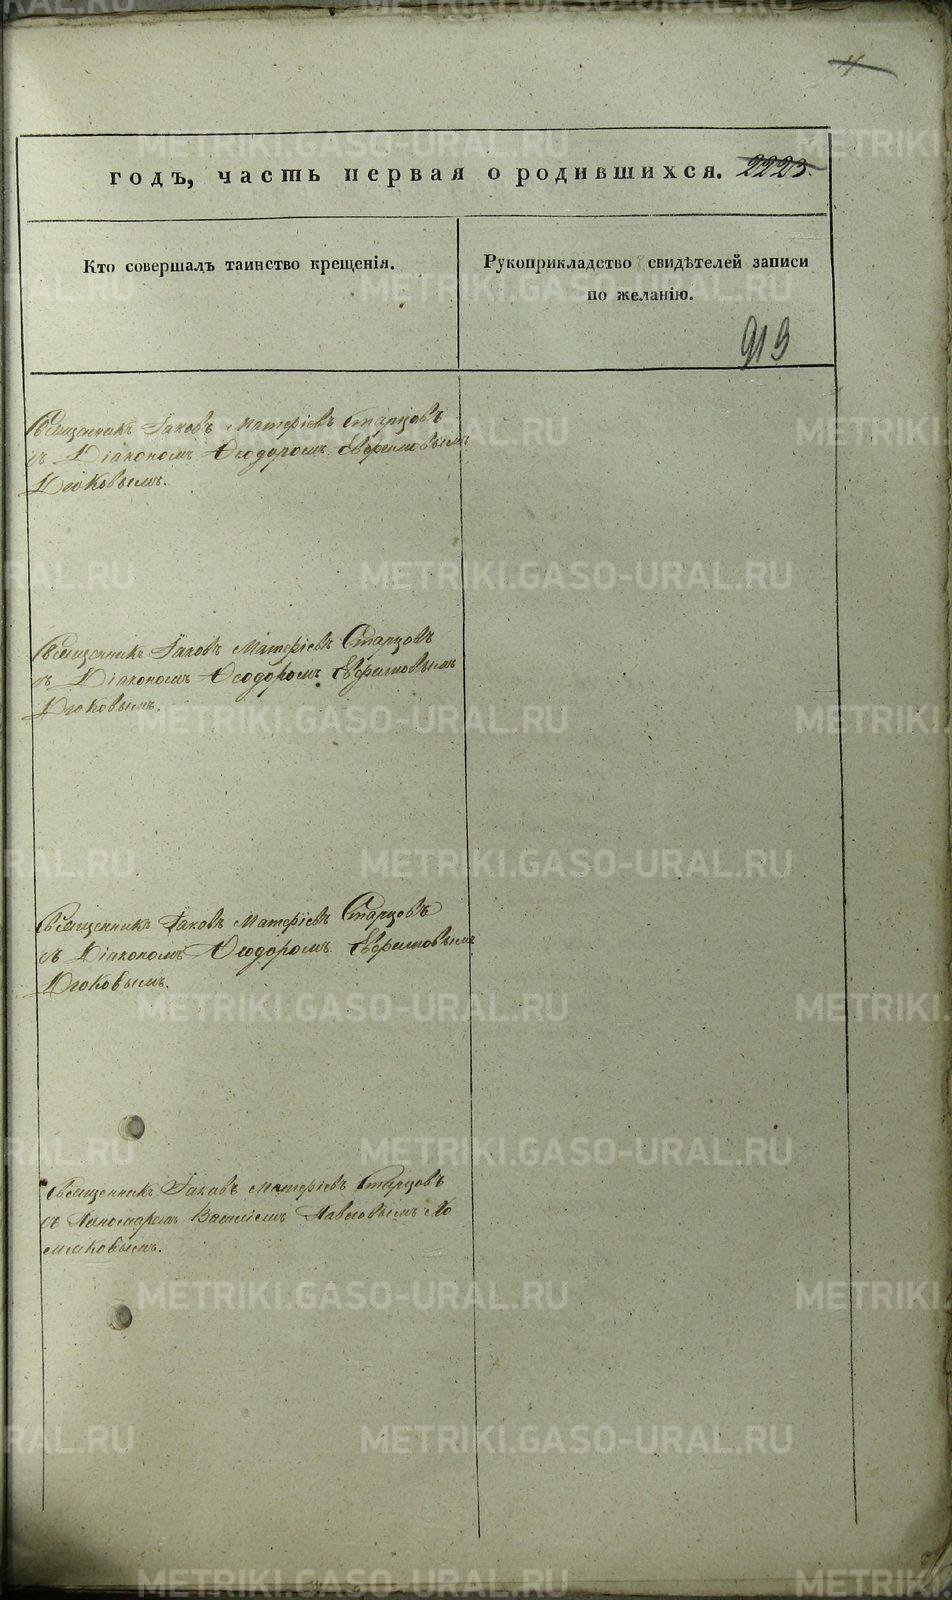 4
годъ, часть первая о родившихся. 2223.
Кто совершалъ таинство крещенія.
Рукоприкладство свидѣтелей записи
по желанію.
919
Священникъ Іаковъ Матфіевъ Старцовъ
съ Діакономъ Ѳеодоромъ Евфимовымъ
Священникъ Іаковъ Матфіевъ Старцовъ
съ Діакономъ Ѳеодоромъ Евфимовымъ
Священникъ Іаковъ Матфіевъ Старцовъ
съ Діакономъ Ѳеодоромъ Евфимовымъ
Священникъ Іаковъ Матфіевъ Старцовъ
съ Пономаремъ Василіемъ Павловымъ Хо
мяковымъ.
METRIKI.GASO-URAL.RU